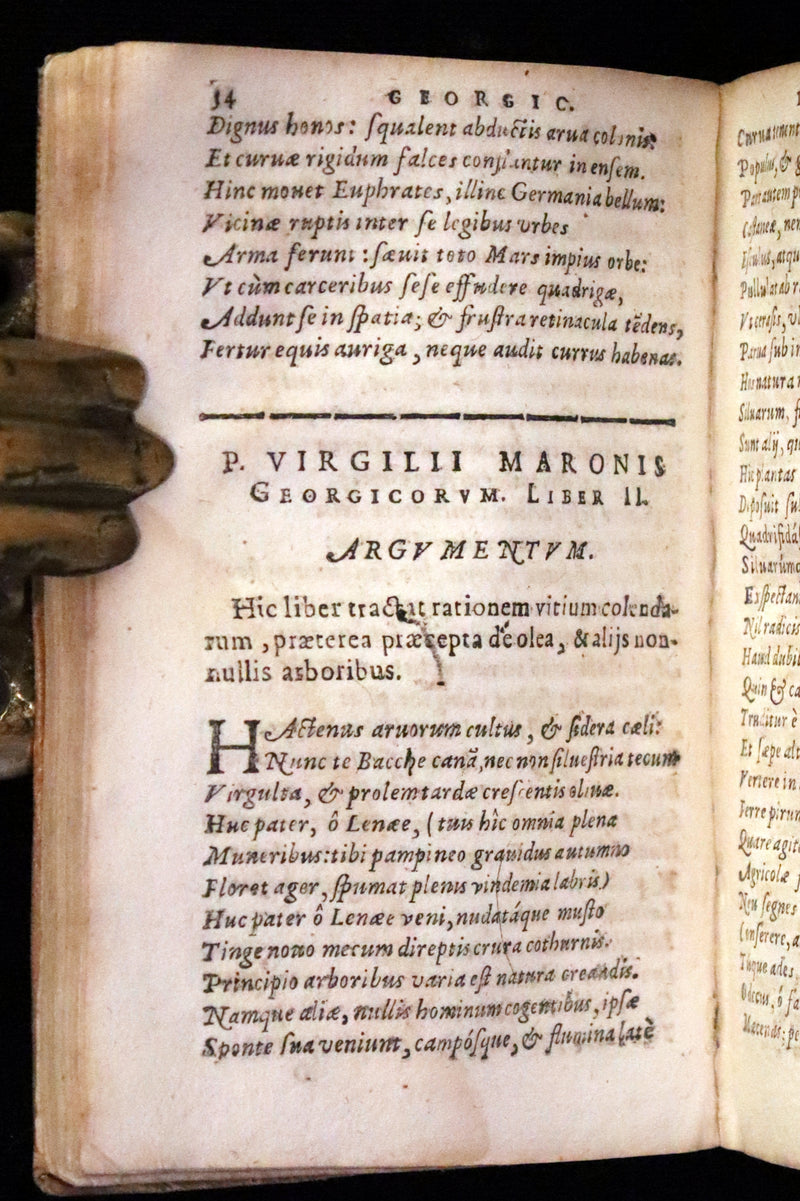 34 GEORGIC.
Dignus honos: ſqualent abductis arua colonis:
Et curuæ rigidum falces conflantur in enſem.
Hinc mouet Euphrates, illinc Germania bellum:
Vicinæ ruptis inter ſe legibus vrbes
Arma ferunt: ſæuit toto Mars impius orbe:
Vt cùm carceribus ſeſe effudere quadrigæ,
Addunt ſe in ſpatia; & fruſtra retinacula tēdens,
Fertur equis auriga, neque audit currus habenas.
P. VIRGILII MARONIS
GEORGICORVM. LIBER II.
ARGVMENTVM.
Hic liber tractat rationem vitium colenda-
rum, præterea præcepta de olea, & alijs non-
nullis arboribus.
HActenus aruorum cultus, & ſidera cæli:
Nunc te Bacche canā, nec non ſilueſtria tecum
Virgulta, & prolem tardæ creſcentis oliuæ.
Huc pater, ô Lenæe, (tuis hîc omnia plena
Muneribus: tibi pampineo grauidus autumno
Floret ager, ſpumat plenis vindemia labris)
Huc pater ô Lenæe veni, nudatáque muſto
Tinge nouo mecum direptis crura cothurnis.
Principio arboribus varia eſt natura creandis.
Namque aliæ, nullis hominum cogentibus, ipſæ
Sponte ſua veniunt, campóſque, & flumina latè
Populus, &
Pullulat ab r
Parua ſub in
Hos natura
Siluarum, f
Sunt alij, qu
Hic plantas
Depoſuit ſu
Quadrifidá
Siluarúmq
Exſpectan
Nil radicis
Haud dubi
Quin & ca
Traditur è
Et ſæpe alt
Vertere in
Ferre pirum
Quare agit
Agricolæ
Neu ſegnes
Conſerere, a
Tuque ades,
O decus, ô fa